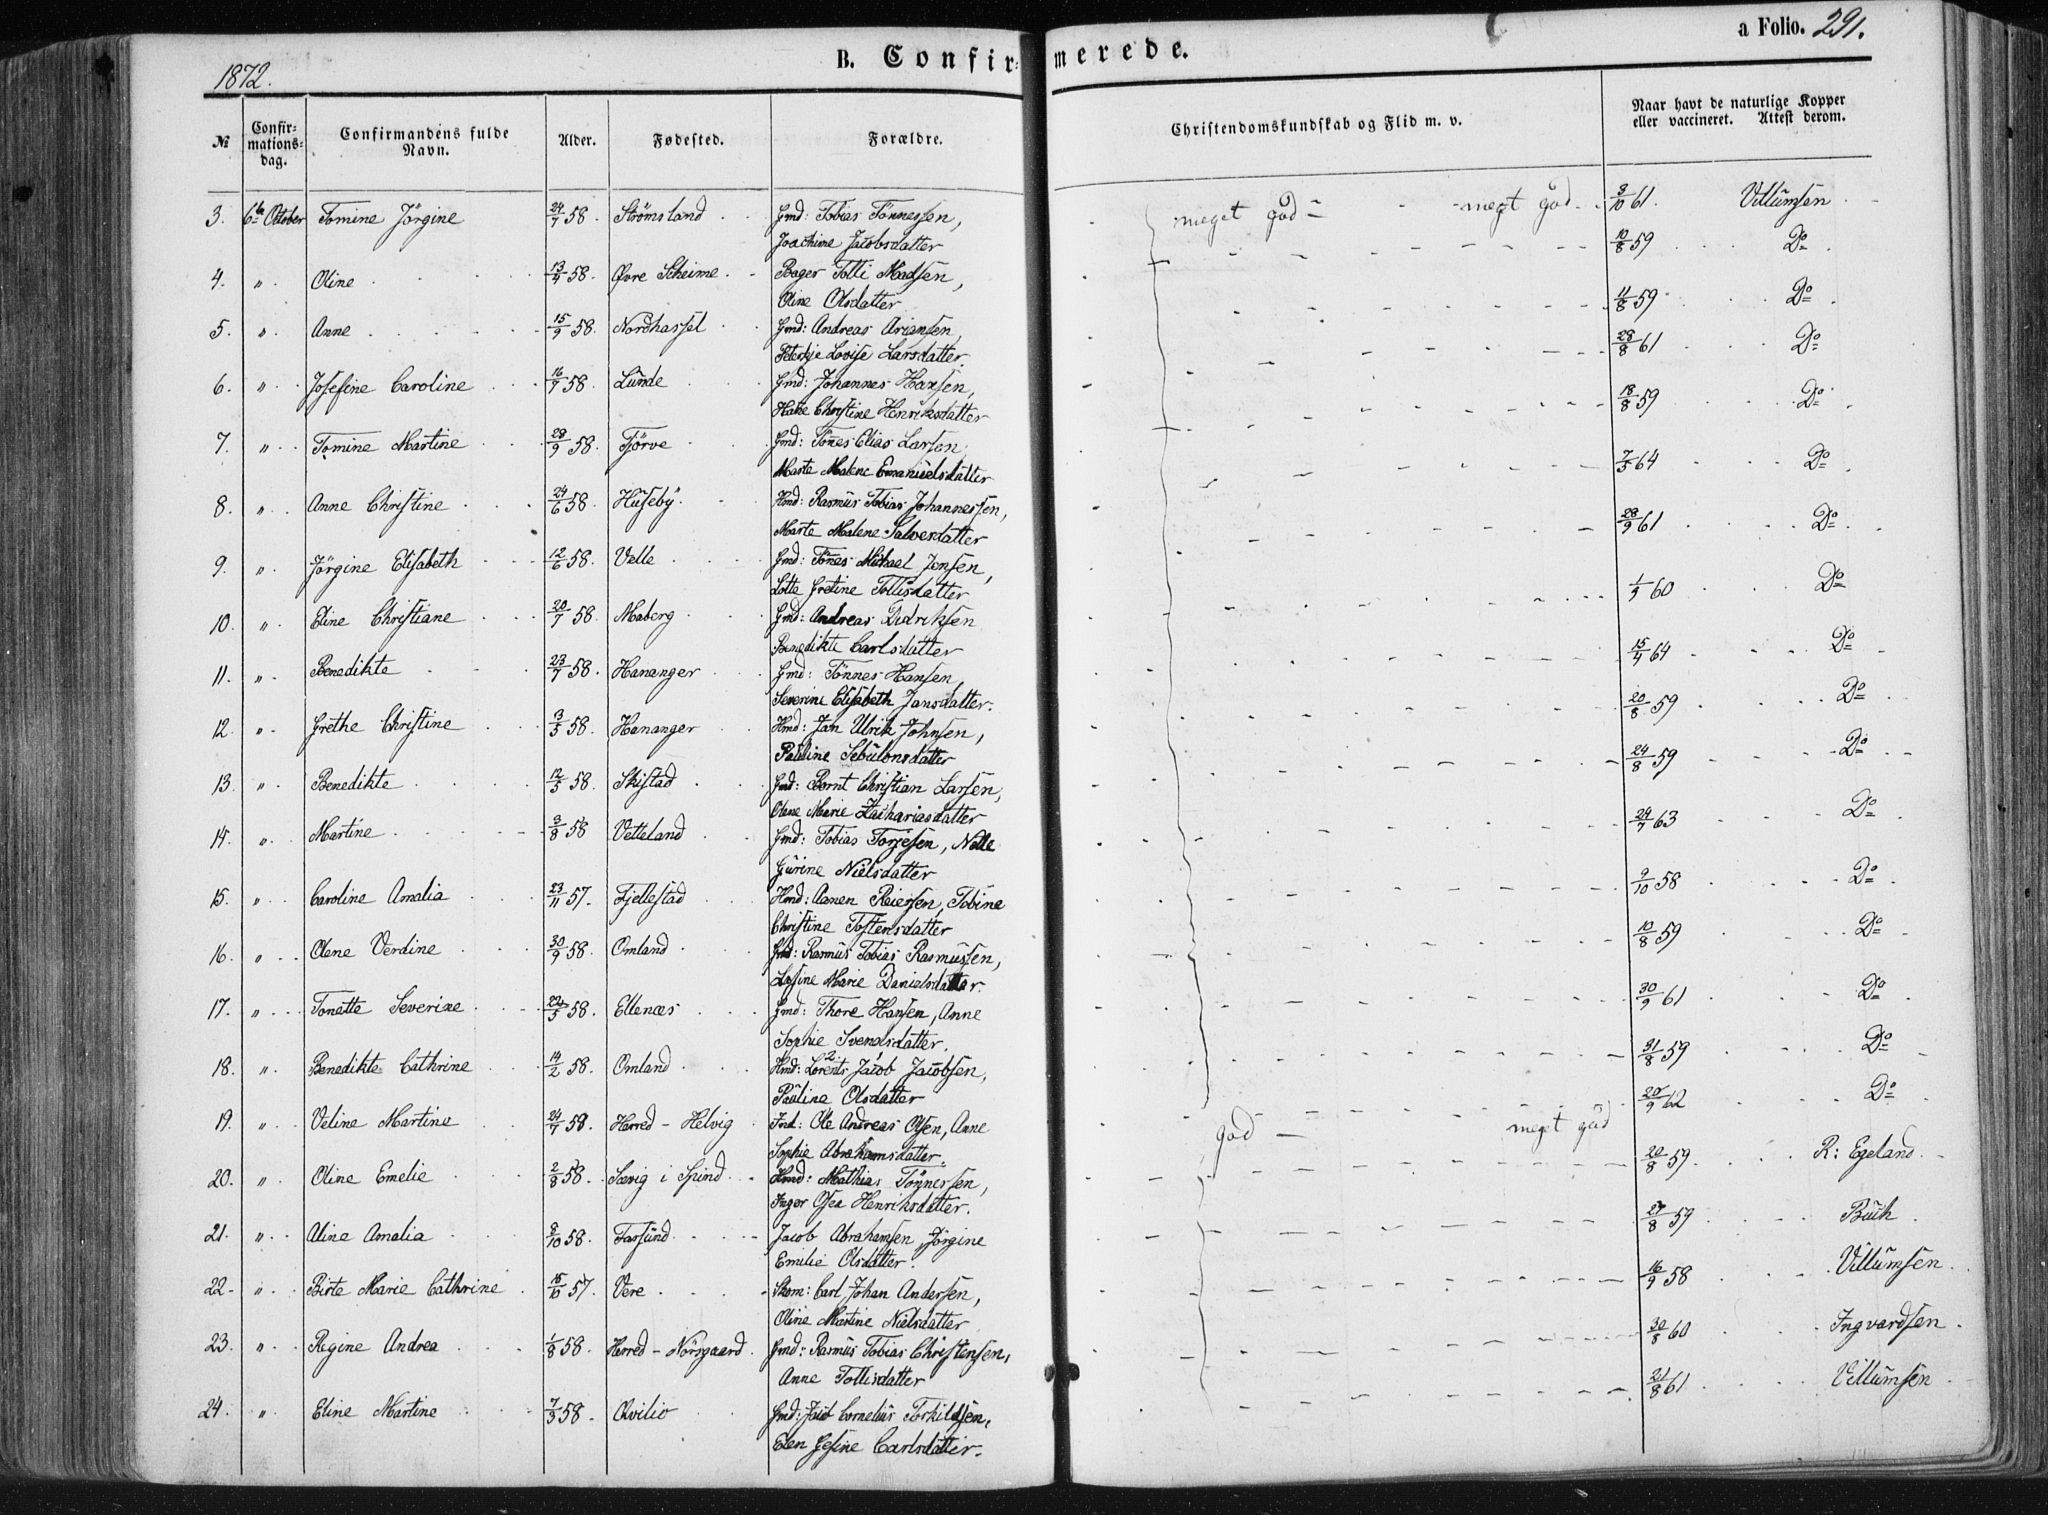 1872.
B. Confirmerede.
a Folio. 291.
№ Confirmationsdag. Confirmandens fulde Navn. Alder. Fødested. Forældre. Christendomskundskab og Flid m. v. Naar havt de naturlige Kopper eller vaccineret. Attest derom.
3. 6te October Tomine Jörgine 24/7 58. Strömsland Gmd: Tobias Tönnessen, meget god - meget god 3/10 61. Villumsen
Joachime Jacobsdatter
4. " Oline 13/4 58. Øvre Skeime Bager Tolli Madsen, 10/8 59 Do
Oline Olsdatter
5. " Anne 15/9 58. Nordhassel Gmd: Andreas Ariansen, 11/8 59 Do
Peterkje Lovise Larsdatter.
6. " Josefine Caroline 16/7 58. Lunde Gmd: Johannes Hansen, 28/8 61 Do
Christine Henriksdatter
7. " Tomine Martine 28/9 58. Tjörve Gmd: Tönes Elias Larsen, 18/8 59 Do
Marte Malene Emanuelsdatter
8. " Anne Christine 24/6 58. Huseby Hmd: Rasmus Tobias Johannessen, 7/5 64 Do
Marte Malene Salvesdatter
9. " Jörgine Elisabeth 12/6 58. Velle Gmd: Tönes Michael Jensen, 28/9 61 Do
Lotte Gretine Tollisdatter
10. " Eline Christiane 20/7 58. Maberg Gmd: Andreas Didriksen 60 Do
Benedikte Carlsdatter
11. " Benedikte 23/7 58. Hananger Gmd: Tönnes Hansen, 15/4 64 Do
Severine Elisabeth Jansdatter.
12. " Grethe Christine 3/5 58. Hananger Hmd: Jan Ulrik Johnsen, 20/8 59 Do
Pauline Sebulonsdatter
13. " Benedikte 12/5 58. Skistad Gmd: Bernt Christian Larsen, 24/8 59 Do
Olene Marie Zachariasdatter
14. " Martine 3/8 58 Vetteland Gmd: Tobias Torjesen, Nille 24/7 63 Do
Gurine Nielsdatter
15. " Caroline Amalia 23/11 57. Fjellestad Hmd: Aanen Reiersen, Tobine 9/10 58 Do
Christine Tostensdatter
16. " Olene Verdine 30/9 58. Omland Gmd: Rasmus Tobias Rasmussen, 10/8 59 Do
Lasine Marie Danielsdatter.
17. " Tonette Severine 22/5 58. Ellenæs Gmd: Thore Hansen, Anne 30/9 61 Do
Sophie Svendsdatter.
18. " Benedikte Cathrine 14/2 58. Omland Hmd: Lorents Jacob Jacobsen, 31/8 59 Do
Pauline Olsdatter
19. " Veline Martine 24/7 58. Herred - Helvig Ole Andreas Olsen, Anne god - meget god 20/9 62 Do
Sophie Abrahamsdatter.
20. " Oline Emelie 2/8 58. Sævig i Spind Hmd: Mathias Tönnessen, 20/8 59. R: Egeland
Inger Osea Henriksdatter.
21. " Aline Amalia 8/10 58. Farsund Jacob Abrahamsen, Jörgine 27/8 59 Buch
Emilie Olsdatter.
22 " Birte Marie Cathrine 57. Vere Skom: Carl Johan Andersen, 16/9 58 Villumsen
Oline Martine Nielsdatter
23. " Regine Andrea 1/8 58. Herred - Norsgaard Gmd: Rasmus Tobias Christensen, 30/8 60 Ingvardsen
Anne Tollisdatter
24. " Eline Martine 7/3 58 Ovilio Gmd: Cornelius Torkildsen, 21/8 61 Villumsen
Elen Gesine Carlsdatter.